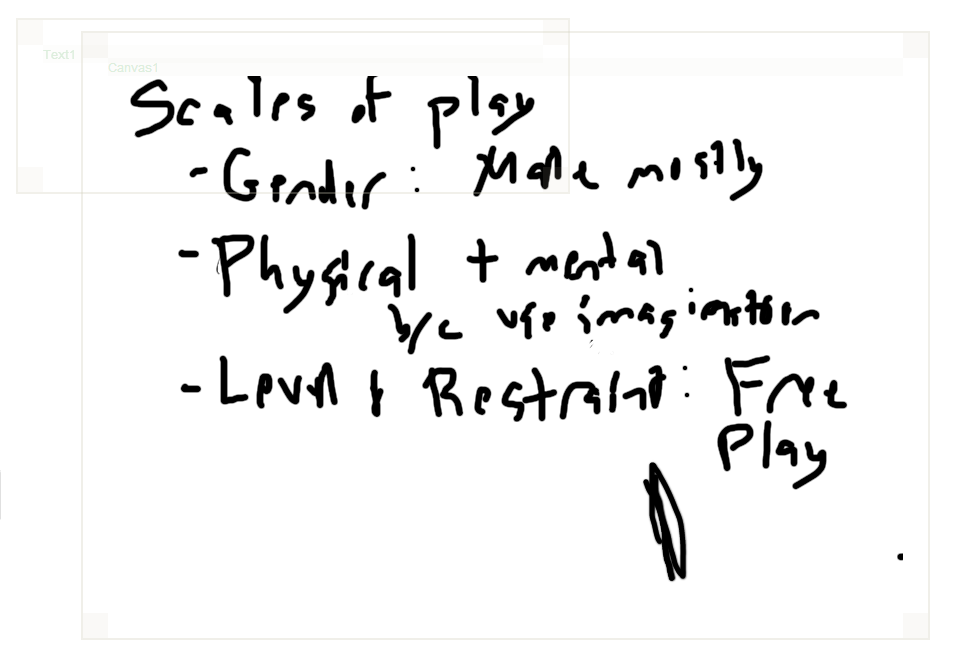 Text1
Canvas1
Scales of play
- Gender: Male mostly
- Physical + mental
b/c use imagination
- Level & Restraint: Free
Play